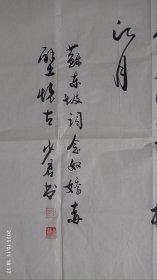 江月
蘇东坡詞念奴嬌赤
壁懷古 少君书